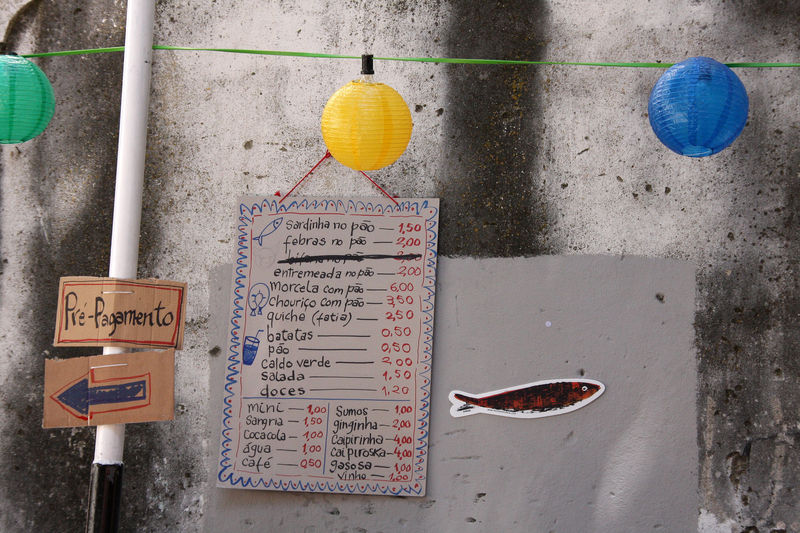 Sardinha no pão — 1,50
febras no pão — 2,00
entremeada no pão — 2,00
morcela com pão — 6,00
chouriço com pão — 3,50
quiche (fatia) — 2,50
batatas — 0,50
pão — 0,50
caldo verde — 2,00
salada — 1,50
doces — 1,20
mini — 1,00
sangria — 1,50
cocacola — 1,00
água — 1,00
café — 0,50
Sumos — 1,00
ginginha — 2,00
caipirinha — 4,00
caipiroska — 4,00
gasosa — 1,00
vinho — 1,00
Pré-Pagamento